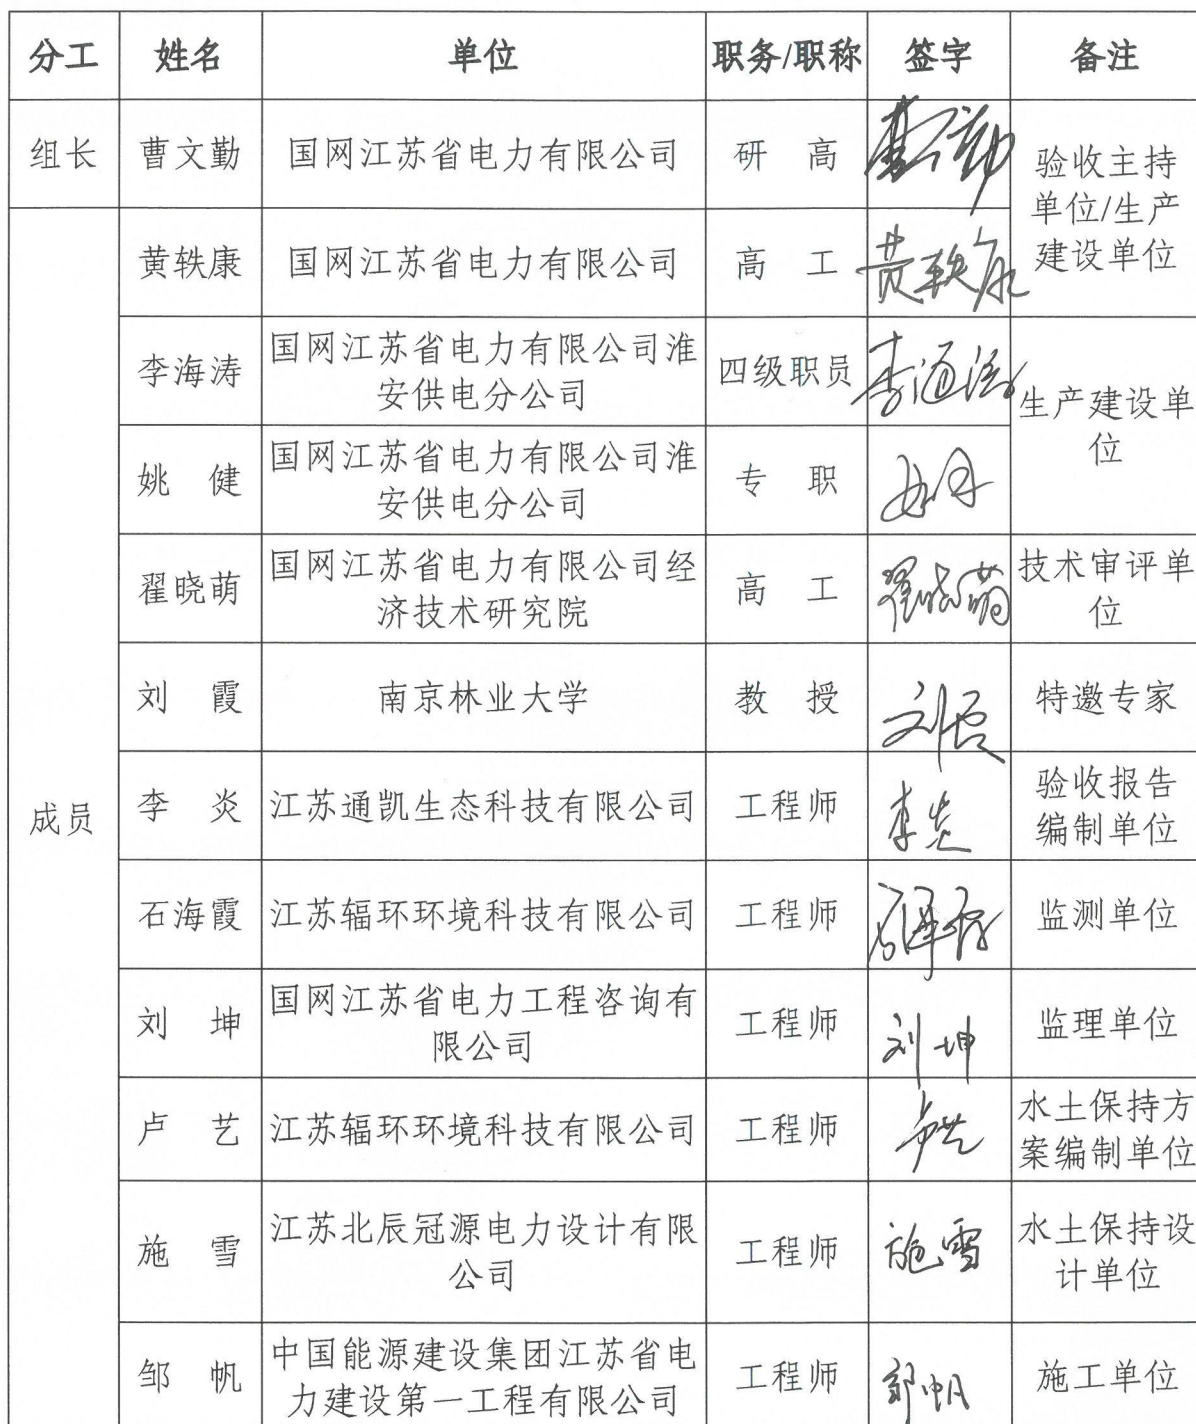 分工 姓名 单位 职务/职称 签字 备注
组长 曹文勤 国网江苏省电力有限公司 研 高
验收主持
单位/生产
建设单位
成员
黄轶康 国网江苏省电力有限公司 高 工 黄轶康
李海涛 国网江苏省电力有限公司淮
安供电分公司 四级职员 李海涛
生产建设单
位
姚 健 国网江苏省电力有限公司淮
安供电分公司 专 职
翟晓萌 国网江苏省电力有限公司经
济技术研究院 高 工 翟晓萌 技术审评单
位
刘 霞 南京林业大学 教 授 刘霞 特邀专家
李 炎 江苏通凯生态科技有限公司 工程师 李炎 验收报告
编制单位
石海霞 江苏辐环环境科技有限公司 工程师 石海霞 监测单位
刘 坤 国网江苏省电力工程咨询有
限公司 工程师 刘坤 监理单位
卢 艺 江苏辐环环境科技有限公司 工程师 卢艺 水土保持方
案编制单位
施 雪 江苏北辰冠源电力设计有限
公司 工程师 施雪 水土保持设
计单位
邹 帆 中国能源建设集团江苏省电
力建设第一工程有限公司 工程师 邹帆 施工单位